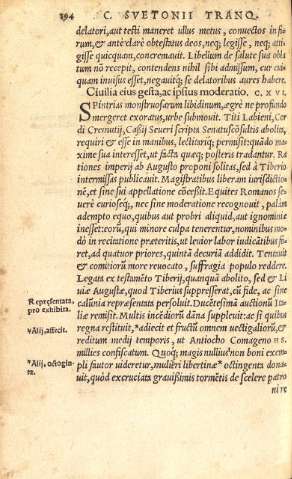 294 C. SVETONII TRANQ.
delatori, aut testi maneret ullus metus, conuectos in fo
rum, & ante clarè obtestatus deos, neq; legisse, neq; atti
gisse quicquam, concremauit. Libellum de salute sua obla
tum nõ recepit, contendens nihil sibi admissum, cur cui
quam inuisus esset, negauitq́; se delatoribus aures habere.
Ciuilia eius gesta, ac ipsius moderatio. C. XVI.
SPintrias monstrosarum libidinum, ægrè ne profundo
mergeret exoratus, urbe submouit. Titi Labieni, Cor
di Cremutij, Cassij Seueri scripta Senatuscõsultis abolita,
requiri & esse in manibus, lectitariq́; permisit: quãdo ma
xime sua interesset, ut facta quæq; posteris tradantur. Ra
tiones imperij ab Augusto proponi solitas, sed à Tiberio
intermissas publicauit. Magistratibus liberam iurisdictio
nē, et sine sui appellatione cõcessit. Equites Romanos se
uerè curioseq́;, nec sine moderatione recognouit, palàm
adempto equo, quibus aut probri aliquid, aut ignominiæ
inesset: eorũ, qui minore culpa tenerentur, nominibus mo
dò in recitatione præteritis, ut leuior labor iudicãtibus fo
ret, ad quatuor priores, quintã decuriã addidit. Tentauit
& comitiorũ more reuocato, suffragia populo reddere.
Legata ex testamẽto Tiberij, quanquã abolito, sed & Li
uiæ Augustæ, quod Tiberius suppresserat, cũ fide, ac sine
calũnia repræsentata persoluit. Ducẽtesima auctionũ Ita
liæ remisit. Multis incẽdiorũ dãna suppleuit: ac si quibus
regna restituit, *adiecit et fructũ omnem uectigaliorũ, &
reditum medij temporis, ut Antiocho Comageno HS.
millies confiscatum. Quoq́; magis nullius nõ boni exem
pli fautor uideretur, mulieri libertinæ *octingenta dona
uit, quòd excruciata grauissimis tormẽtis de scelere patro
ni re
Repræsentata,
pro exhibita.
*Alij, affecit.
*Alij, octogin
ta.